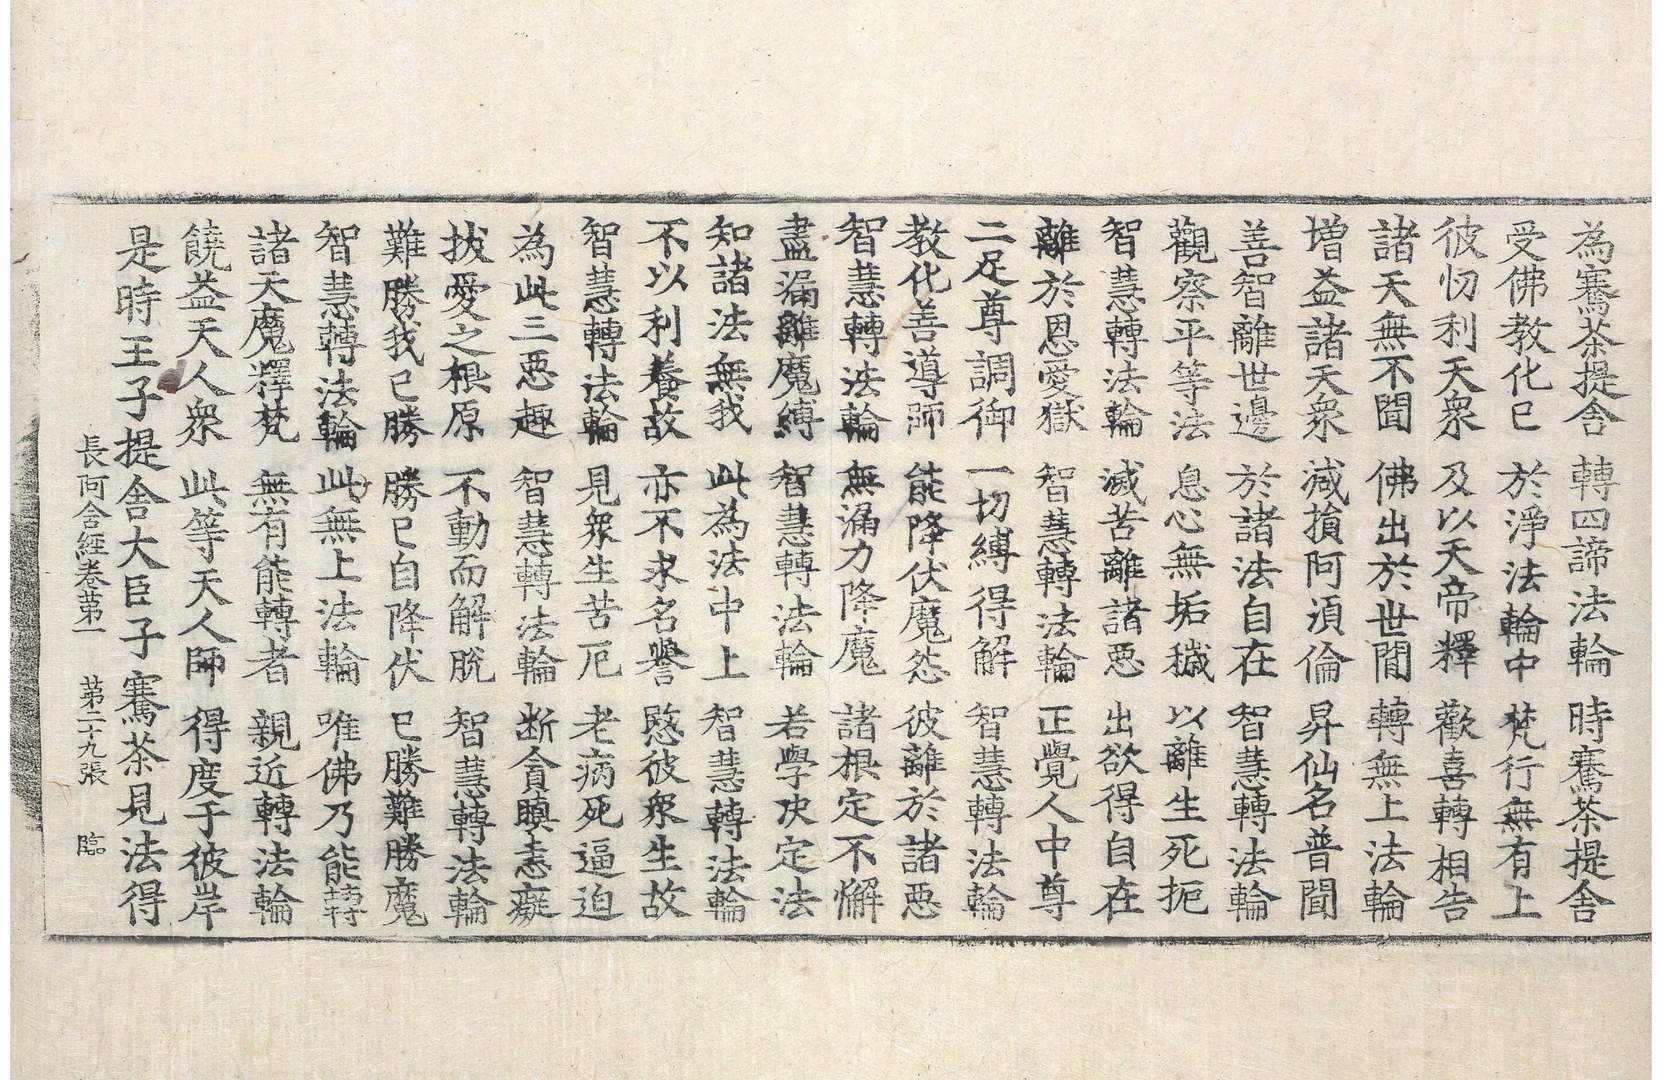 為騫茶提舍 轉四諦法輪 時騫茶提舍
受佛教化已 於淨法輪中 梵行無有上
彼忉利天衆 及以天帝釋 歡喜轉相告
諸天無不聞 佛出於世間 轉無上法輪
增益諸天衆 減損阿須倫 昇仙名普聞
善智離世邊 於諸法自在 智慧轉法輪
觀察平等法 息心無垢穢 以離生死扼
智慧轉法輪 滅苦離諸惡 出欲得自在
離於恩愛獄 智慧轉法輪 正覺人中尊
二足尊調御 一切縛得解 智慧轉法輪
教化善導師 能降伏魔怨 彼離於諸惡
智慧轉法輪 無漏力降魔 諸根定不懈
盡漏離魔縛 智慧轉法輪 若學决定法
知諸法無我 此為法中上 智慧轉法輪
不以利養故 亦不求名譽 愍彼衆生故
智慧轉法輪 見衆生苦厄 老病死逼迫
為此三惡趣 智慧轉法輪 断貪瞋恚癡
拔愛之根原 不動而解脫 智慧轉法輪
難勝我已勝 勝已自降伏 已勝難勝魔
智慧轉法輪 此無上法輪 唯佛乃能轉
諸天魔釋梵 無有能轉者 親近轉法輪
饒益天人衆 此等天人師 得度于彼岸
是時王子提舍大臣子騫茶見法得
長阿含經卷苐一 苐二十九張 臨